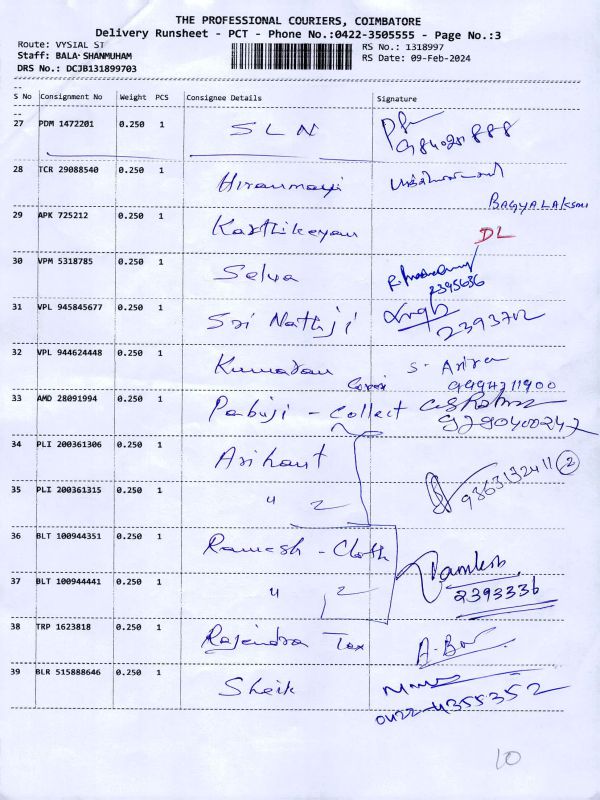 THE PROFESSIONAL COURIERS, COIMBATORE
Delivery Runsheet - PCT - Phone No.:0422-3505555 - Page No.:3
Route: VYSIAL ST
Staff: BALA-SHANMUHAM
DRS No.: DCJB131899703
RS No.: 1318997
RS Date: 09-Feb-2024
S No Consignment No Weight PCS Consignee Details Signature
27 PDM 1472201 0.250 1 SLN
28 TCR 29088540 0.250 1 Hiranmayi
BAGYALAKSMI
29 APK 725212 0.250 1 Karthikeyan DL
30 VPM 5318785 0.250 1 Selva 2395636
31 VPL 945845677 0.250 1 Sri Nathji 2393702
32 VPL 944624448 0.250 1 Kumaran S.
9994711900
33 AMD 28091994 0.250 1 Pabuji - Collect
34 PLI 200361306 0.250 1 Arihant
35 PLI 200361315 0.250 1 " 2 9363132411 2
36 BLT 100944351 0.250 1 Ramesh - Cloth
37 BLT 100944441 0.250 1 " 2 2393336
38 TRP 1623818 0.250 1 Rajendra Tex
39 BLR 515888646 0.250 1 Sheik
0422-4355352
10